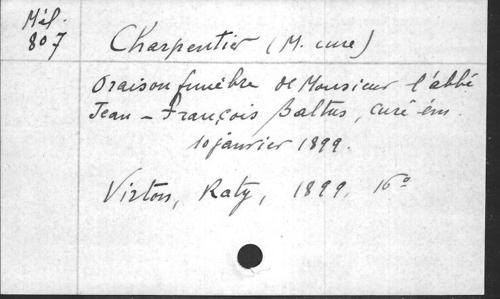 Mél.
807
Charpentier (M. cure)
Oraison funèbre de Monsieur l'abbé
Jean-François Baltus, curé-ém.
10 janvier 1899.
Virton, Raty, 1899, 16°